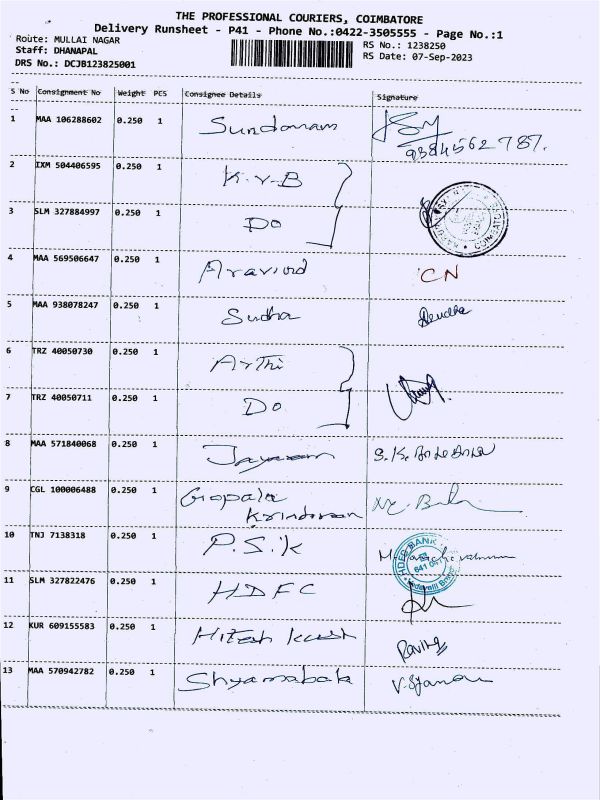 THE PROFESSIONAL COURIERS, COIMBATORE
Delivery Runsheet - P41 - Phone No.:0422-3505555 - Page No.:1
Route: MULLAI NAGAR RS No.: 1238250
Staff: DHANAPAL RS Date: 07-Sep-2023
DRS No.: DCJB123825001
S No Consignment No Weight PCS Consignee Details Signature
1 MAA 106288602 0.250 1 Sundaram
9384562787.
2 IXM 504406595 0.250 1 K.V.B
3 SLM 327884997 0.250 1 Do
COIMBATORE
4 MAA 569506647 0.250 1 Aravind CN
5 MAA 938078247 0.250 1 Sudha Sudha
6 TRZ 40050730 0.250 1 Arthi
7 TRZ 40050711 0.250 1 Do
8 MAA 571840068 0.250 1 Jayaram
9 CGL 100006488 0.250 1 Gopala
10 TNJ 7138318 0.250 1 P.S.K
HDFC BANK
641 041
11 SLM 327822476 0.250 1 HDFC
12 KUR 609155583 0.250 1 Hitesh
13 MAA 570942782 0.250 1 Shyamabala